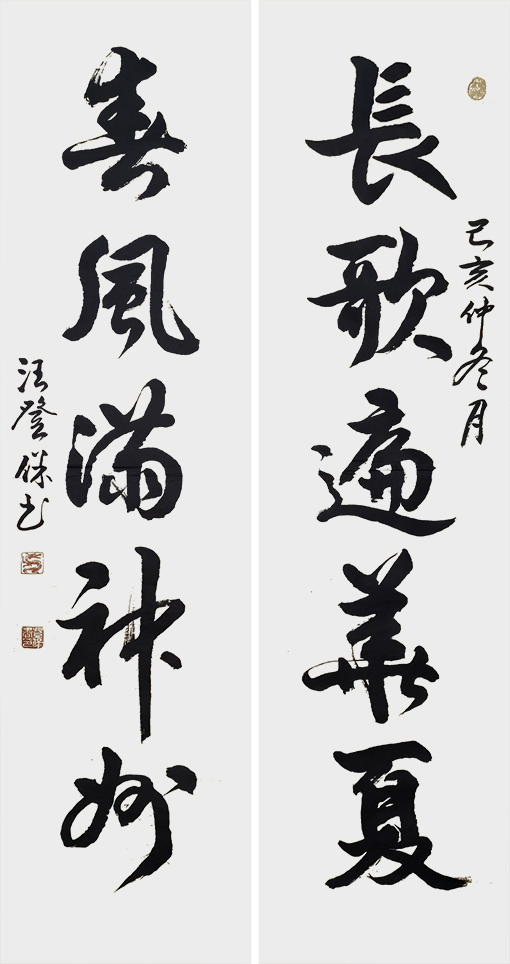 己亥仲冬月
長歌遍華夏
春風滿神州
汪登傑书